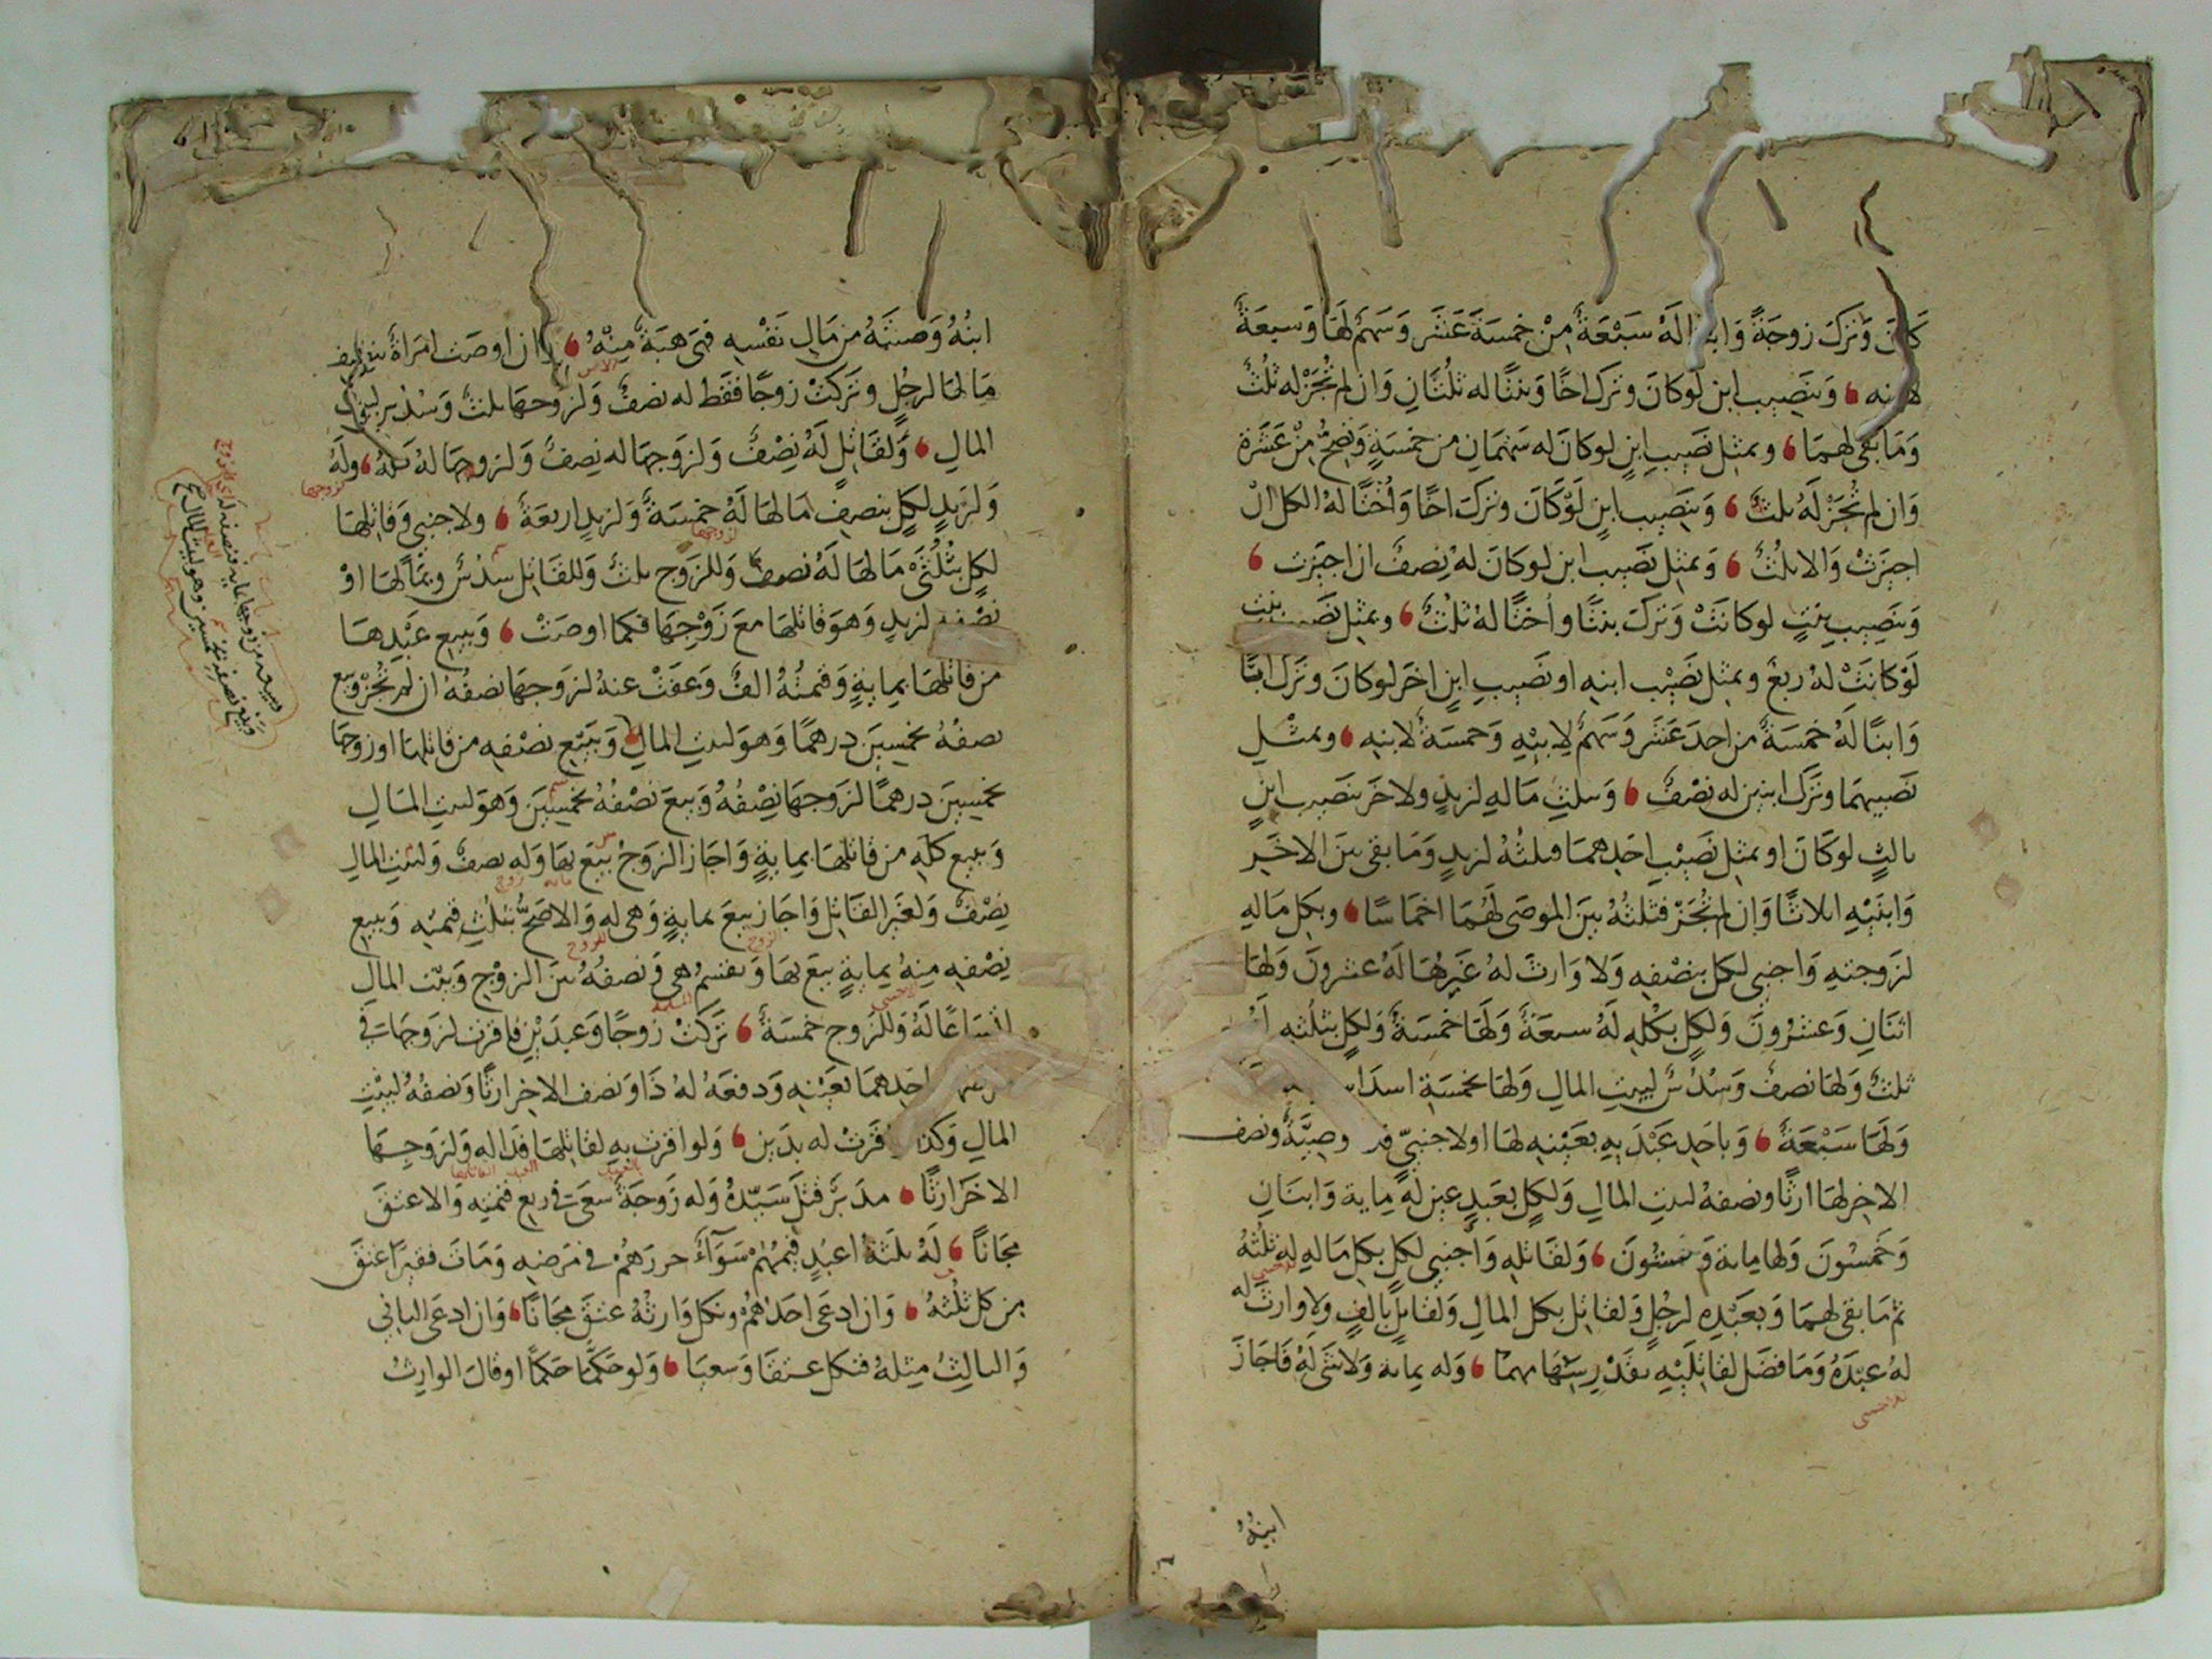 كان وترك زوجة وابنا له سبعة من خمسة عشر وسهم لها وسبعة
لابنه وبنصيب ابن لو كان وترك اخا وبنتا له ثلثان وان لم تجز له ثلث
وما بقي لهما وبمثل نصيب ابن لو كان له سهمان من خمسة وتصح من عشرة
وان لم تجز له ثلث وبنصيب ابن لو كان وترك اخا واختا له الكل ان
اجيزت والا ثلث وبمثل نصيب ابن لو كان له نصف ان اجيزت
وبنصيب بنت لو كانت وترك بنتا واختا له ثلث وبمثل نصيب بنت
لو كانت له ربع وبمثل نصيب ابنه او نصيب ابن اخر لو كان وترك ابنا
وابنا له خمسة من احد عشر وسهم لابنته وخمسة لابنه وبمثل
نصيبهما وترك ابنين له نصف وبثلث ماله لزيد ولاخر بنصيب ابن
ثالث لو كان او بمثل نصيب احدهما فثلثه لزيد وما بقي بين الاخر
وابنيه اثلاثا وان لم تجز فثلثه بين الموصى لهما اخماسا وبكل ماله
لزوجته واجنبي لكل بنصفه ولا وارث له غيرها له عشرون ولها
اثنان وعشرون ولكل بكله له سبعة ولها خمسة ولكل بثلثه
ثلث ولها نصف وسدس لبيت المال ولها بخمسة اسداس
ولها سبعة وباحد عبديه بعينه لها او لاجنبي وصية ونصف
الاخر لها ارثا ونصفه لبيت المال ولكل بعبد عين له ماية وابنان
وخمسون ولها ماية وستون ولقاتله واجنبي لكل بكل ماله له ثلثه
ثم ما بقي لهما وبعبده لرجل ولقاتل بكل المال ولقاتل بالف ولا وارث له
له عبده وما فضل لقاتليه بقدر سهامهما وله بماية ولا شي له فاجاز
للاجنبي
ابنه
ابنه وصيته من مال نفسه فهي هبة منه وان اوصت امراة بنصف
مالها لرجل وتركت زوجا فقط له نصف ولزوجها ثلث وسدس لبيت
المال ولقاتل له نصف ولزوجها له نصف ولزوجها له كله وله
ولزيد لكل بنصف مالها له خمسة ولزيد اربعة ولاجنبي وقاتلها
لكل بثلثي مالها له نصف وللزوج ثلث وللقاتل سدس وبمالها او
نصفه لزيد وهو قاتلها مع زوجها فكما اوصت وببيع عبدها
من قاتلها بماية وقيمته الف وعفت عنه لزوجها نصفه ان لم تجز وبيع
نصفه بخمسين درهما وهو لبيت المال وببيع نصفه من قاتلها او زوجها
بخمسين درهما لزوجها نصفه وبيع نصفه بخمسين وهو لبيت المال
وببيع كله من قاتلها بماية واجاز الزوج بيع بها وله نصف ولبيت المال
نصف ولغير القاتل واجاز بيع بماية وهي له والاصح بثلث قيمته وببيع
نصفه منه بماية بيع بها وتقسم هي ونصفه بين الزوج وبيت المال
اتساعا له وللزوج خمسة تركت زوجا وعبدين فاقرت لزوجها في
احدهما بعينه ودفعه له ذا ونصف الاخر ارثا ونصفه لبيت
المال وكذا اقرت له بدين ولو اقرت به لقاتلها فذا له ولزوجها
الاخر ارثا مدبر قتل سيده وله زوجة سعى في ربع قيمته والا عتق
مجانا له ثلثة اعبد قيمتهم سواء حررهم في مرضه ومات فقيرا عتق
من كل ثلثه وان ادعى احدهم ونكل وارثه عتق مجانا وان ادعى الثاني
والثالث مثله فنكل عتقا وسعيا ولو حكما حكما او قال الوارث